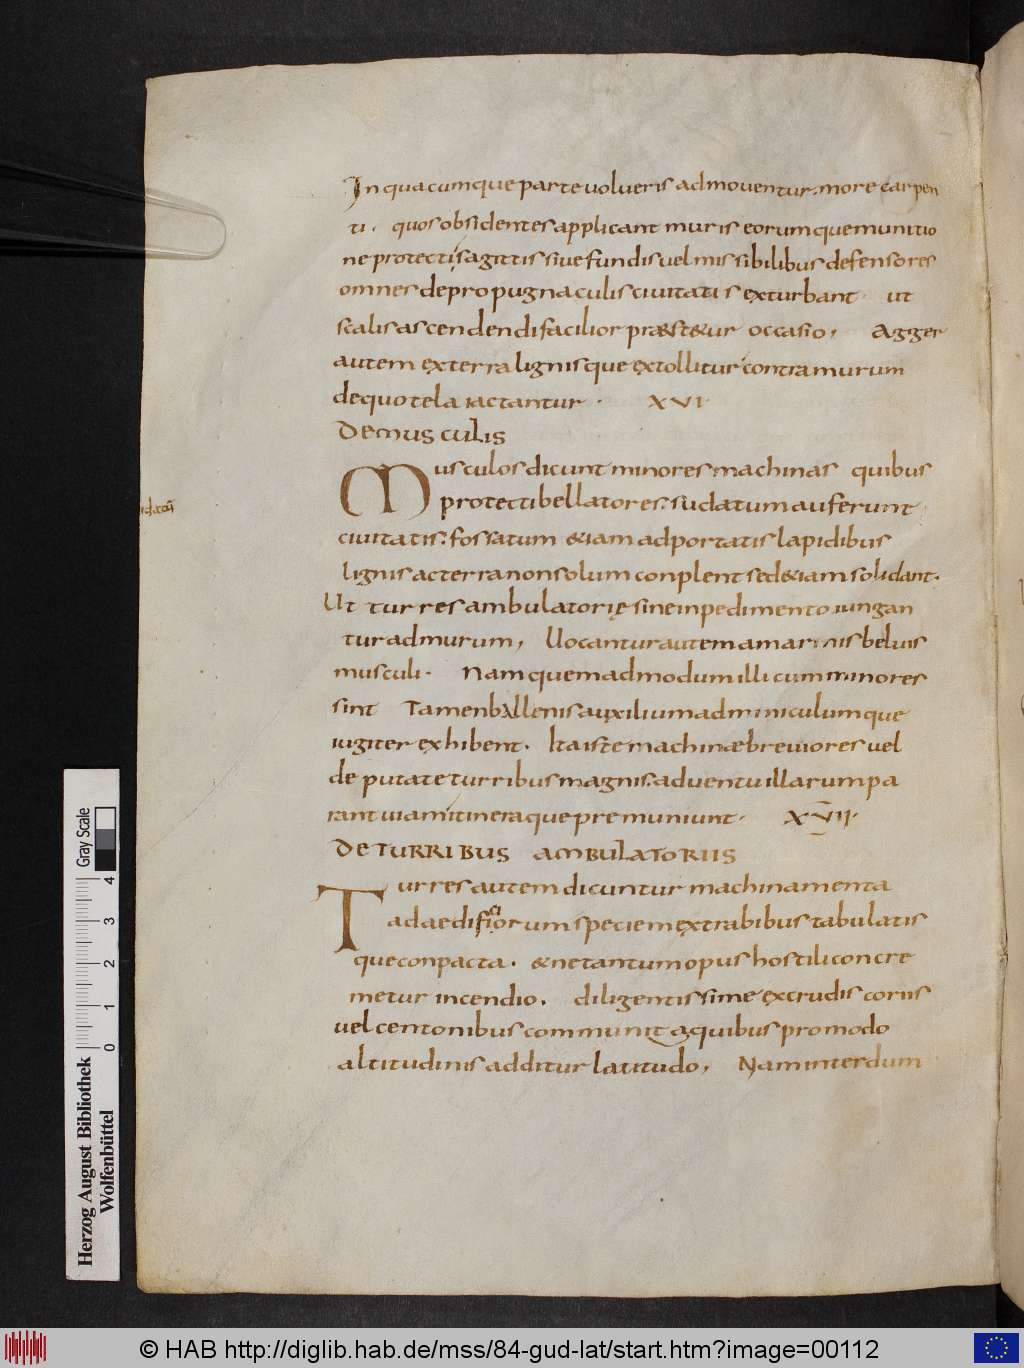 In quacumque parte uolueris admouentur. more carpen
ti. quos obsidentes applicant muris eorumque munitio
ne protecti sagittis siue fundis uel missibilibus defensores
omnes de propugnaculis ciuitatis exturbant ut
scalis ascendendi facilior præst&ur occasio, Agger
autem ex terra lignisque extollitur contra murum
de quo tela iactantur. XVI
De musculis
Musculos dicunt minores machinas quibus
protecti bellatores. sudatum auferunt
ciuitatis. fossatum &iam adportatis lapidibus
lignis ac terra non solum conplent sed &iam solidant.
Ut turres ambulatorię sine inpedimento iungan
tur ad murum, Uocantur autem a marinis beluis
musculi. Nam quemadmodum illi cum minores
sint Tamen ballenis auxilium adminiculumque
iugiter exhibent. Ita iste machinæ breuiores uel
deputate turribus magnis. aduentu illarum pa
rant uiam itineraque premuniunt. XVII.
DE TURRIBUS AMBULATORIIS
Turres autem dicuntur machinamenta
ad aedificiorum speciem ex trabibus tabulatis
que conpacta. & ne tantum opus hostili concre
metur incendio. diligentissime ex crudis coriis
uel centonibus communit quibus pro modo
altitudinis additur latitudo, Nam interdum
Herzog August Bibliothek
Wolfenbüttel
0 1 2 3 4
Gray Scale
© HAB http://diglib.hab.de/mss/84-gud-lat/start.htm?image=00112